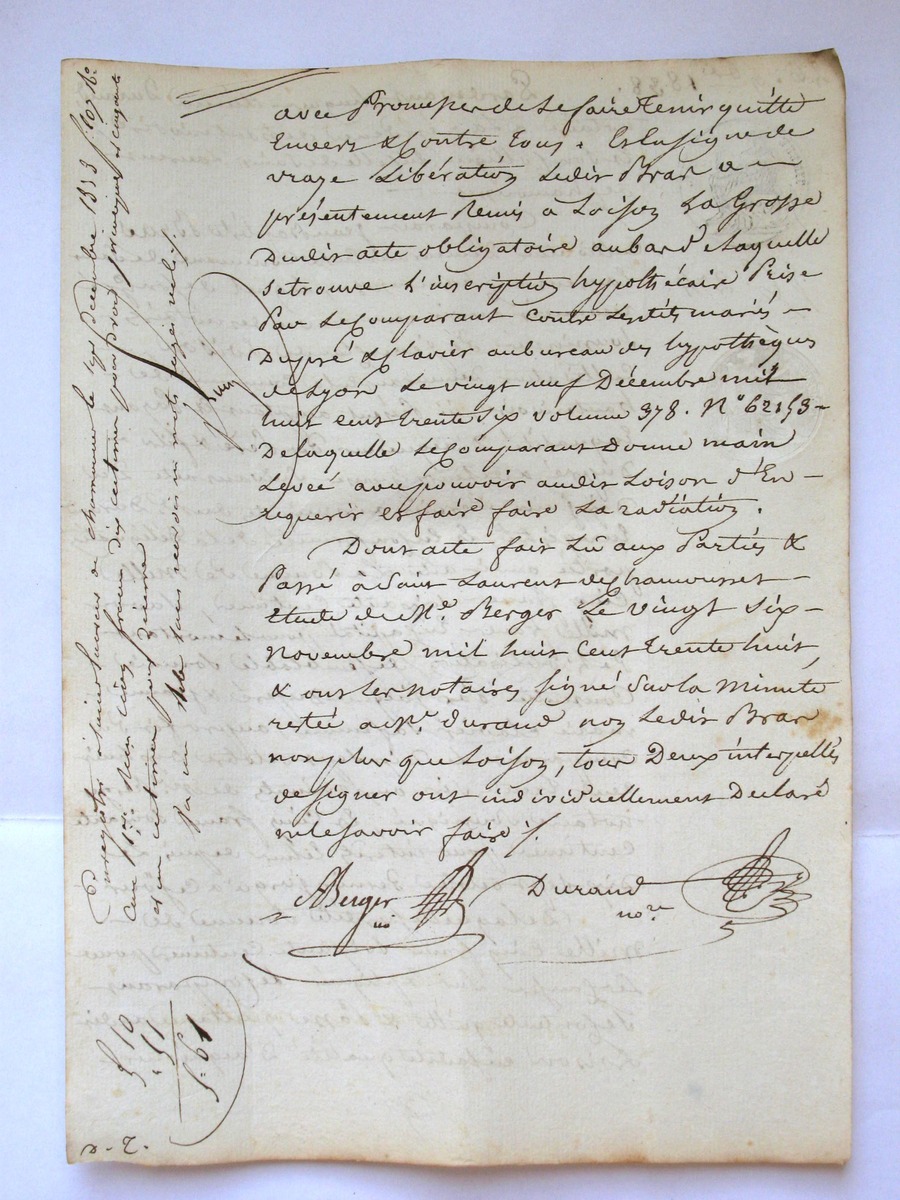 avec Promesse de le faire tenir quitte
Envers & Contre tous. Et en signe de
vraye Libération ledit Bras a
présentement Remis à Loison La Grosse
Dudit acte obligatoire au bas de laquelle
se trouve l'inscription hypothécaire Prise
Par le Comparant contre les dits mariés
Dupré & Clavier au bureau des hypothèques
de Lyon le vingt neuf Décembre mil
huit cent trente six volume 378. N° 62153
De laquelle le Comparant Donne main
Levée avec pouvoir audit Loison d'En
requerir et faire faire la radiation.
Dont acte fait Lû aux Parties &
Passé à Saint Laurent de Chamousset
étude de Me. Berger le vingt six
novembre mil huit cent trente huit,
& ont les notaires signé sur la Minute
restée a Me. durand non ledit Bras
non plus que Loison, tous Deux interpellés
de signer ont individuellement Declaré
ne le savoir faire ./.
ABerger
nre
Durand
nore
Enregistré à Saint Laurent de chamousset le Décembre 1838 f. 107
cinq francs dix centimes pour
et un centimes pour dixième
mots rayés nuls ./.
5. 10
. 51
5. 61
D. R.